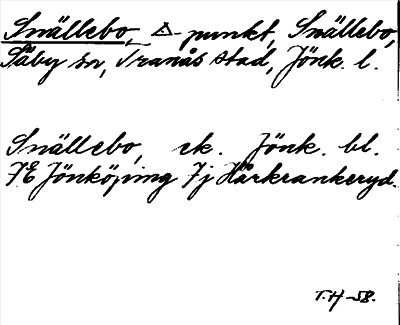 Snällebo, △-punkt, Snällebo,
Säby sn, Tranås stad, Jönk. l.
Snällebo, ek. Jönk. bl.
7E Jönköping 7j Hårkrankeryd.
T.H-58.